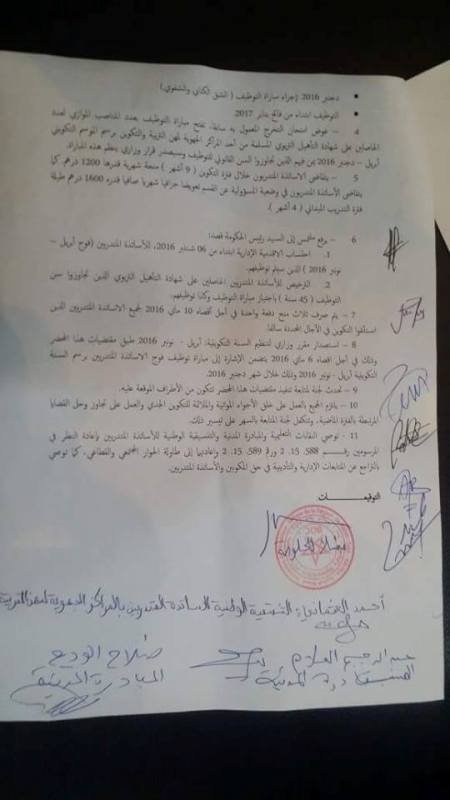 دجنبر 2016 إجراء مباراة التوظيف ( الشق الكتابي والشفوي)
التوظيف ابتداء من فاتح يناير 2017.
4 - عوض امتحان التخرج المعمول به سابقا، تفتح مباراة التوظيف بعدد المناصب الموازي لعدد
الحاصلين على شهادة التأهيل التربوي المسلمة من أحد المراكز الجهوية لمهن التربية والتكوين برسم الموسم التكويني
أبريل - دجنبر 2016 بمن فيهم الذين تجاوزوا السن القانوني للتوظيف وسيصدر قرار وزاري ينظم هذه المباراة.
5 - يتقاضى الأساتذة المتدربون خلال فترة التكوين ( 9 أشهر ) منحة شهرية قدرها 1200 درهم كما
يتقاضى الأساتذة المتدربون في وضعية المسؤولية عن القسم تعويضا جزافيا شهريا صافيا قدره 1600 درهم طيلة
فترة التدريب الميداني ( 4 أشهر ).
6 - يرفع ملتمس إلى السيد رئيس الحكومة قصد:
1. احتساب الأقدمية الإدارية ابتداء من 06 شتنبر 2016، للأساتذة المتدربين (فوج أبريل -
نونبر 2016 ) الذين سيتم توظيفهم.
2. الترخيص للأساتذة المتدربين الحاصلين على شهادة التأهيل التربوي الذين تجاوزوا سن
التوظيف ( 45 سنة ) باجتياز مباراة التوظيف وكذا توظيفهم.
7 - يتم صرف ثلاث منح دفعة واحدة في أجل أقصاه 10 ماي 2016 لجميع الأساتذة المتدربين الذين
استأنفوا التكوين في الآجال المحددة سالفا.
8 - استصدار مقرر وزاري لتنظيم السنة التكوينية، أبريل - نونبر 2016 طبق مقتضيات هذا المحضر
وذلك في أجل أقصاه 6 ماي 2016 يتضمن الإشارة إلى مباراة توظيف فوج الأساتذة المتدربين برسم السنة
التكوينية أبريل - نونبر 2016 وذلك خلال شهر دجنبر 2016.
9 - تحدث لجنة متابعة تنفيذ مقتضيات هذا المحضر تتكون من الأطراف الموقعة عليه.
10 - يلتزم الجميع بالعمل على خلق الأجواء المواتية والملائمة للتكوين الجدي والعمل على تجاوز وحل القضايا
المرتبطة بالفترة الماضية، وتتكفل لجنة المتابعة بالسهر على تيسير ذلك.
11 - توصي النقابات التعليمية والمبادرة المدنية والتنسيقية الوطنية للأساتذة المتدربين بإعادة النظر في
المرسومين رقم 588. 15. 2 ورقم 589. 15. 2 وإعادتهما إلى طاولة الحوار المجتمعي والقطاعي، كما توصي
بالتراجع عن المتابعات الإدارية والتأديبية في حق المكونين والأساتذة المتدربين.
التوقيعات
أحمد التنسيقية الوطنية للأساتذة المتدربين بالمراكز الجهوية لمهن التربية
عبد الرحيم العلام
صلاح الوديع
المبادرة المدنية